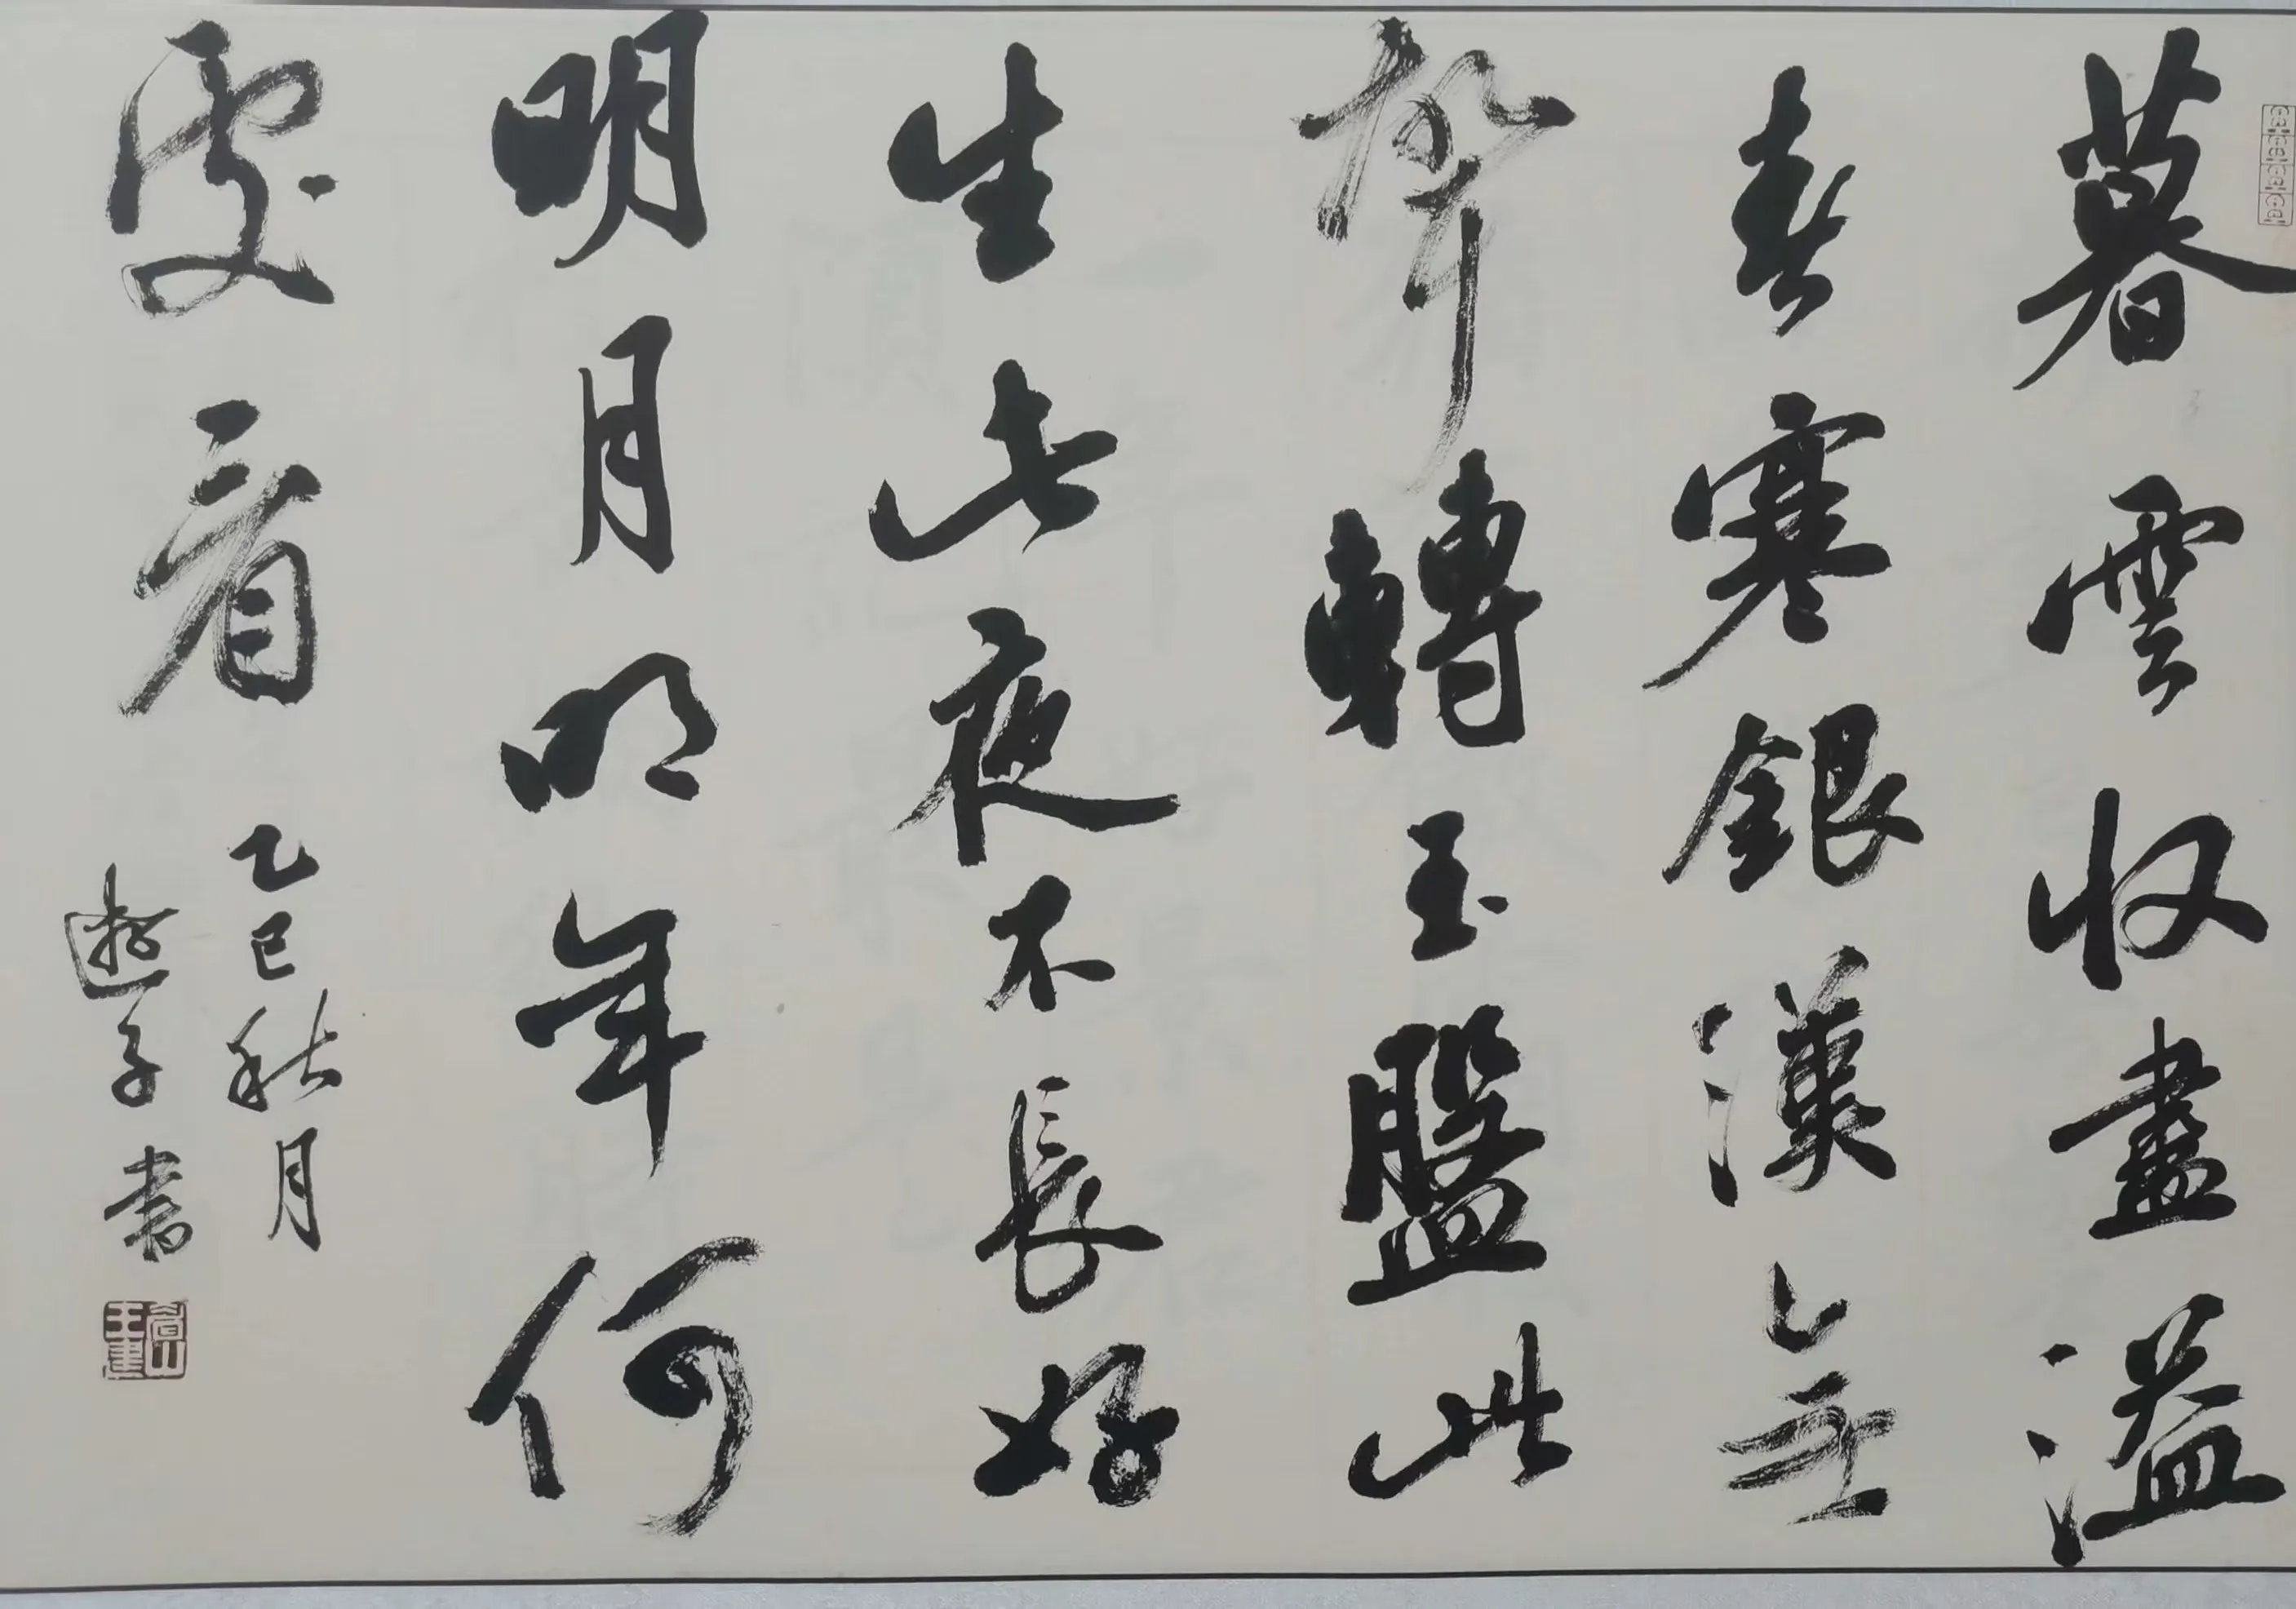 暮雲收盡溢
春寒銀漢無
聲轉玉盤此
生此夜不長好
明月明年何
處看
乙巳秋月
遊子書